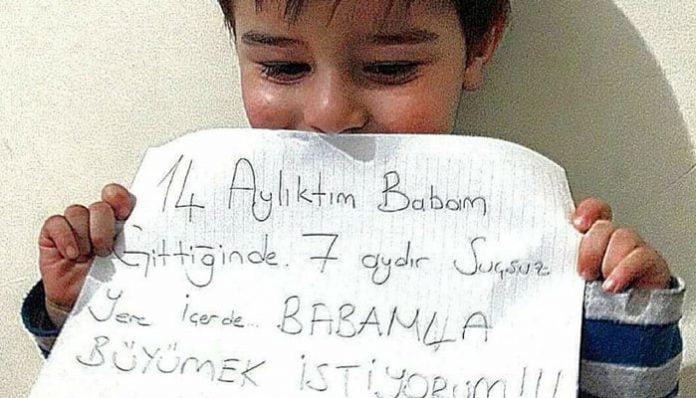 14 Aylıktım Babam
Gittiğinde. 7 aydır Suçsuz
Yere içerde... BABAMLA
BÜYÜMEK İSTİYORUM!!!